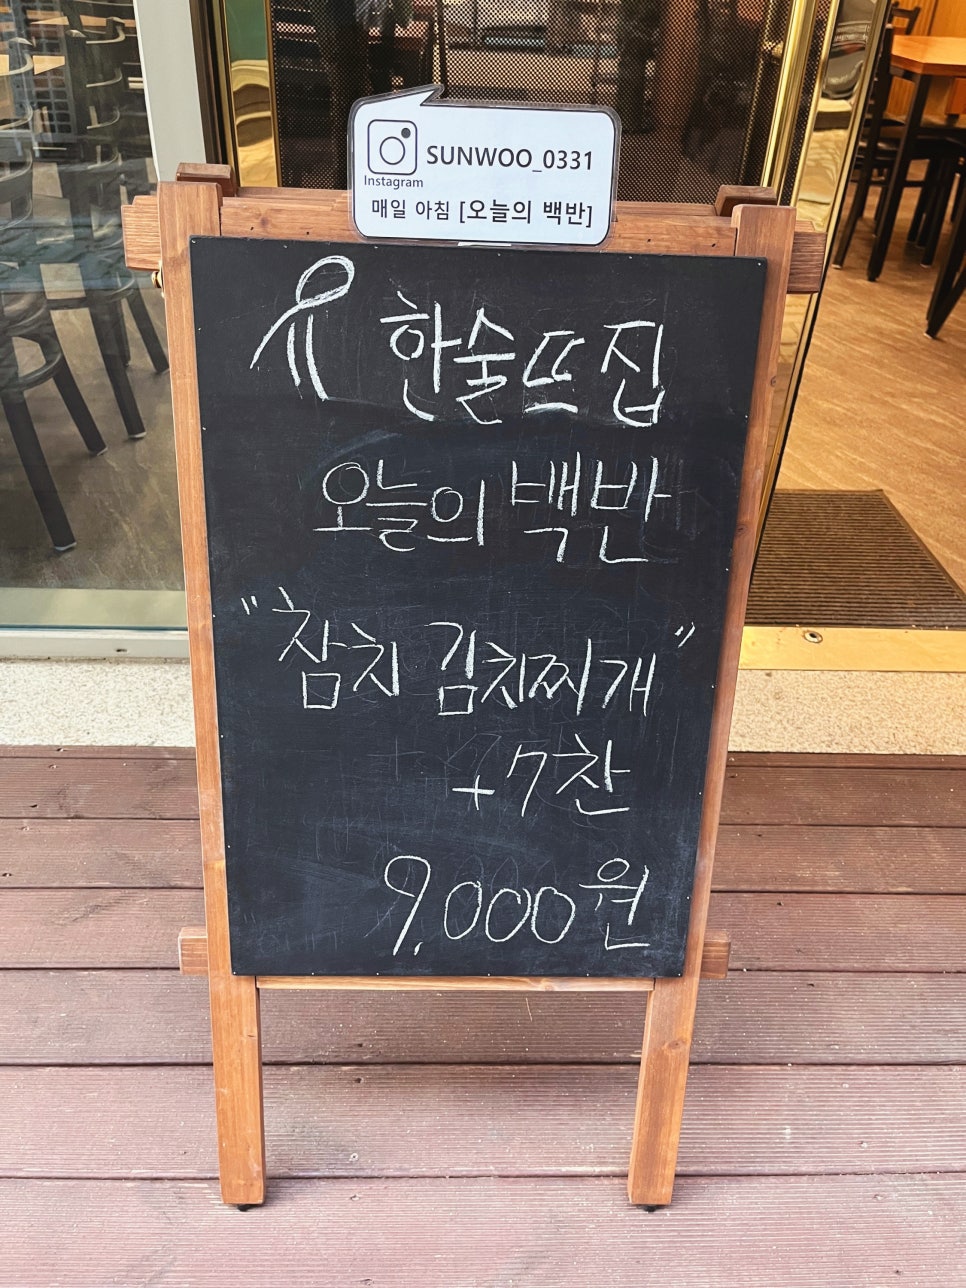 SUNWOO_0331
Instagram
매일 아침 [오늘의 백반]
한술뜨집
오늘의 백반
"참치 김치찌개"
+7찬
9,000원